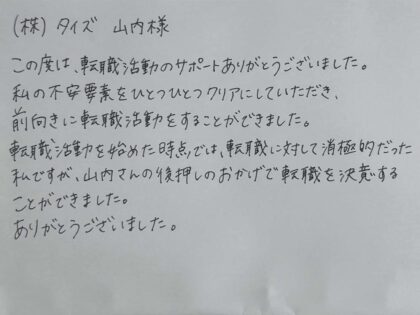 (株) タイズ 山内様
この度は、転職活動のサポートありがとうございました。
私の不安要素をひとつひとつクリアにしていただき、
前向きに転職活動をすることができました。
転職活動を始めた時点では、転職に対して消極的だった
私ですが、山内さんの後押しのおかげで転職を決意する
ことができました。
ありがとうございました。